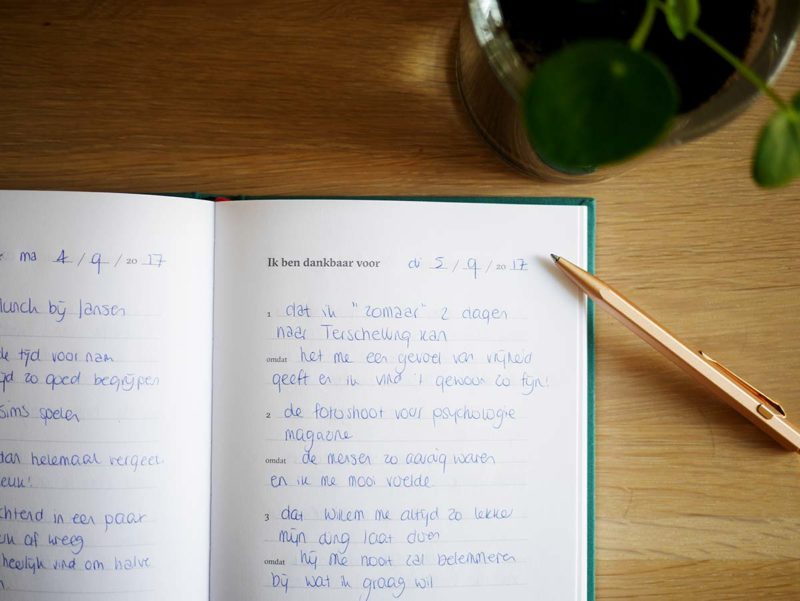 ma 4 / 9 / 20 17
lunch bij Jansen
tijd voor nam
zo goed begrijpen
sims spelen
dan helemaal vergeet
leuk!
in een paar
of weeg
heerlijk vind om halve
Ik ben dankbaar voor di 5 / 9 / 20 17
1 dat ik "zomaar" 2 dagen
naar Terschelling kan
omdat het me een gevoel van vrijheid
geeft en ik vind 't gewoon zo fijn!
2 de fotoshoot voor psychologie
magazine
omdat de mensen zo aardig waren
en ik me mooi voelde
3 dat Willem me altijd zo lekker
mijn ding laat doen
omdat hij me nooit zal belemmeren
bij wat ik graag wil